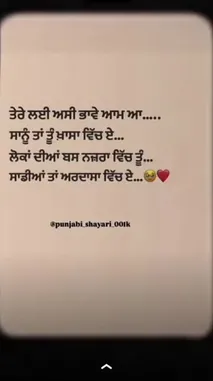 ਤੇਰੇ ਲਈ ਅਸੀ ਭਾਵੇ ਆਮ ਆ.....
ਸਾਨੂੰ ਤਾਂ ਤੂੰ ਖ਼ਾਸਾ ਵਿੱਚ ਏ...
ਲੋਕਾਂ ਦੀਆਂ ਬਸ ਨਜ਼ਰਾ ਵਿੱਚ ਤੂੰ...
ਸਾਡੀਆਂ ਤਾਂ ਅਰਦਾਸਾ ਵਿੱਚ ਏ...🥹❤️
@punjabi_shayari_00tk